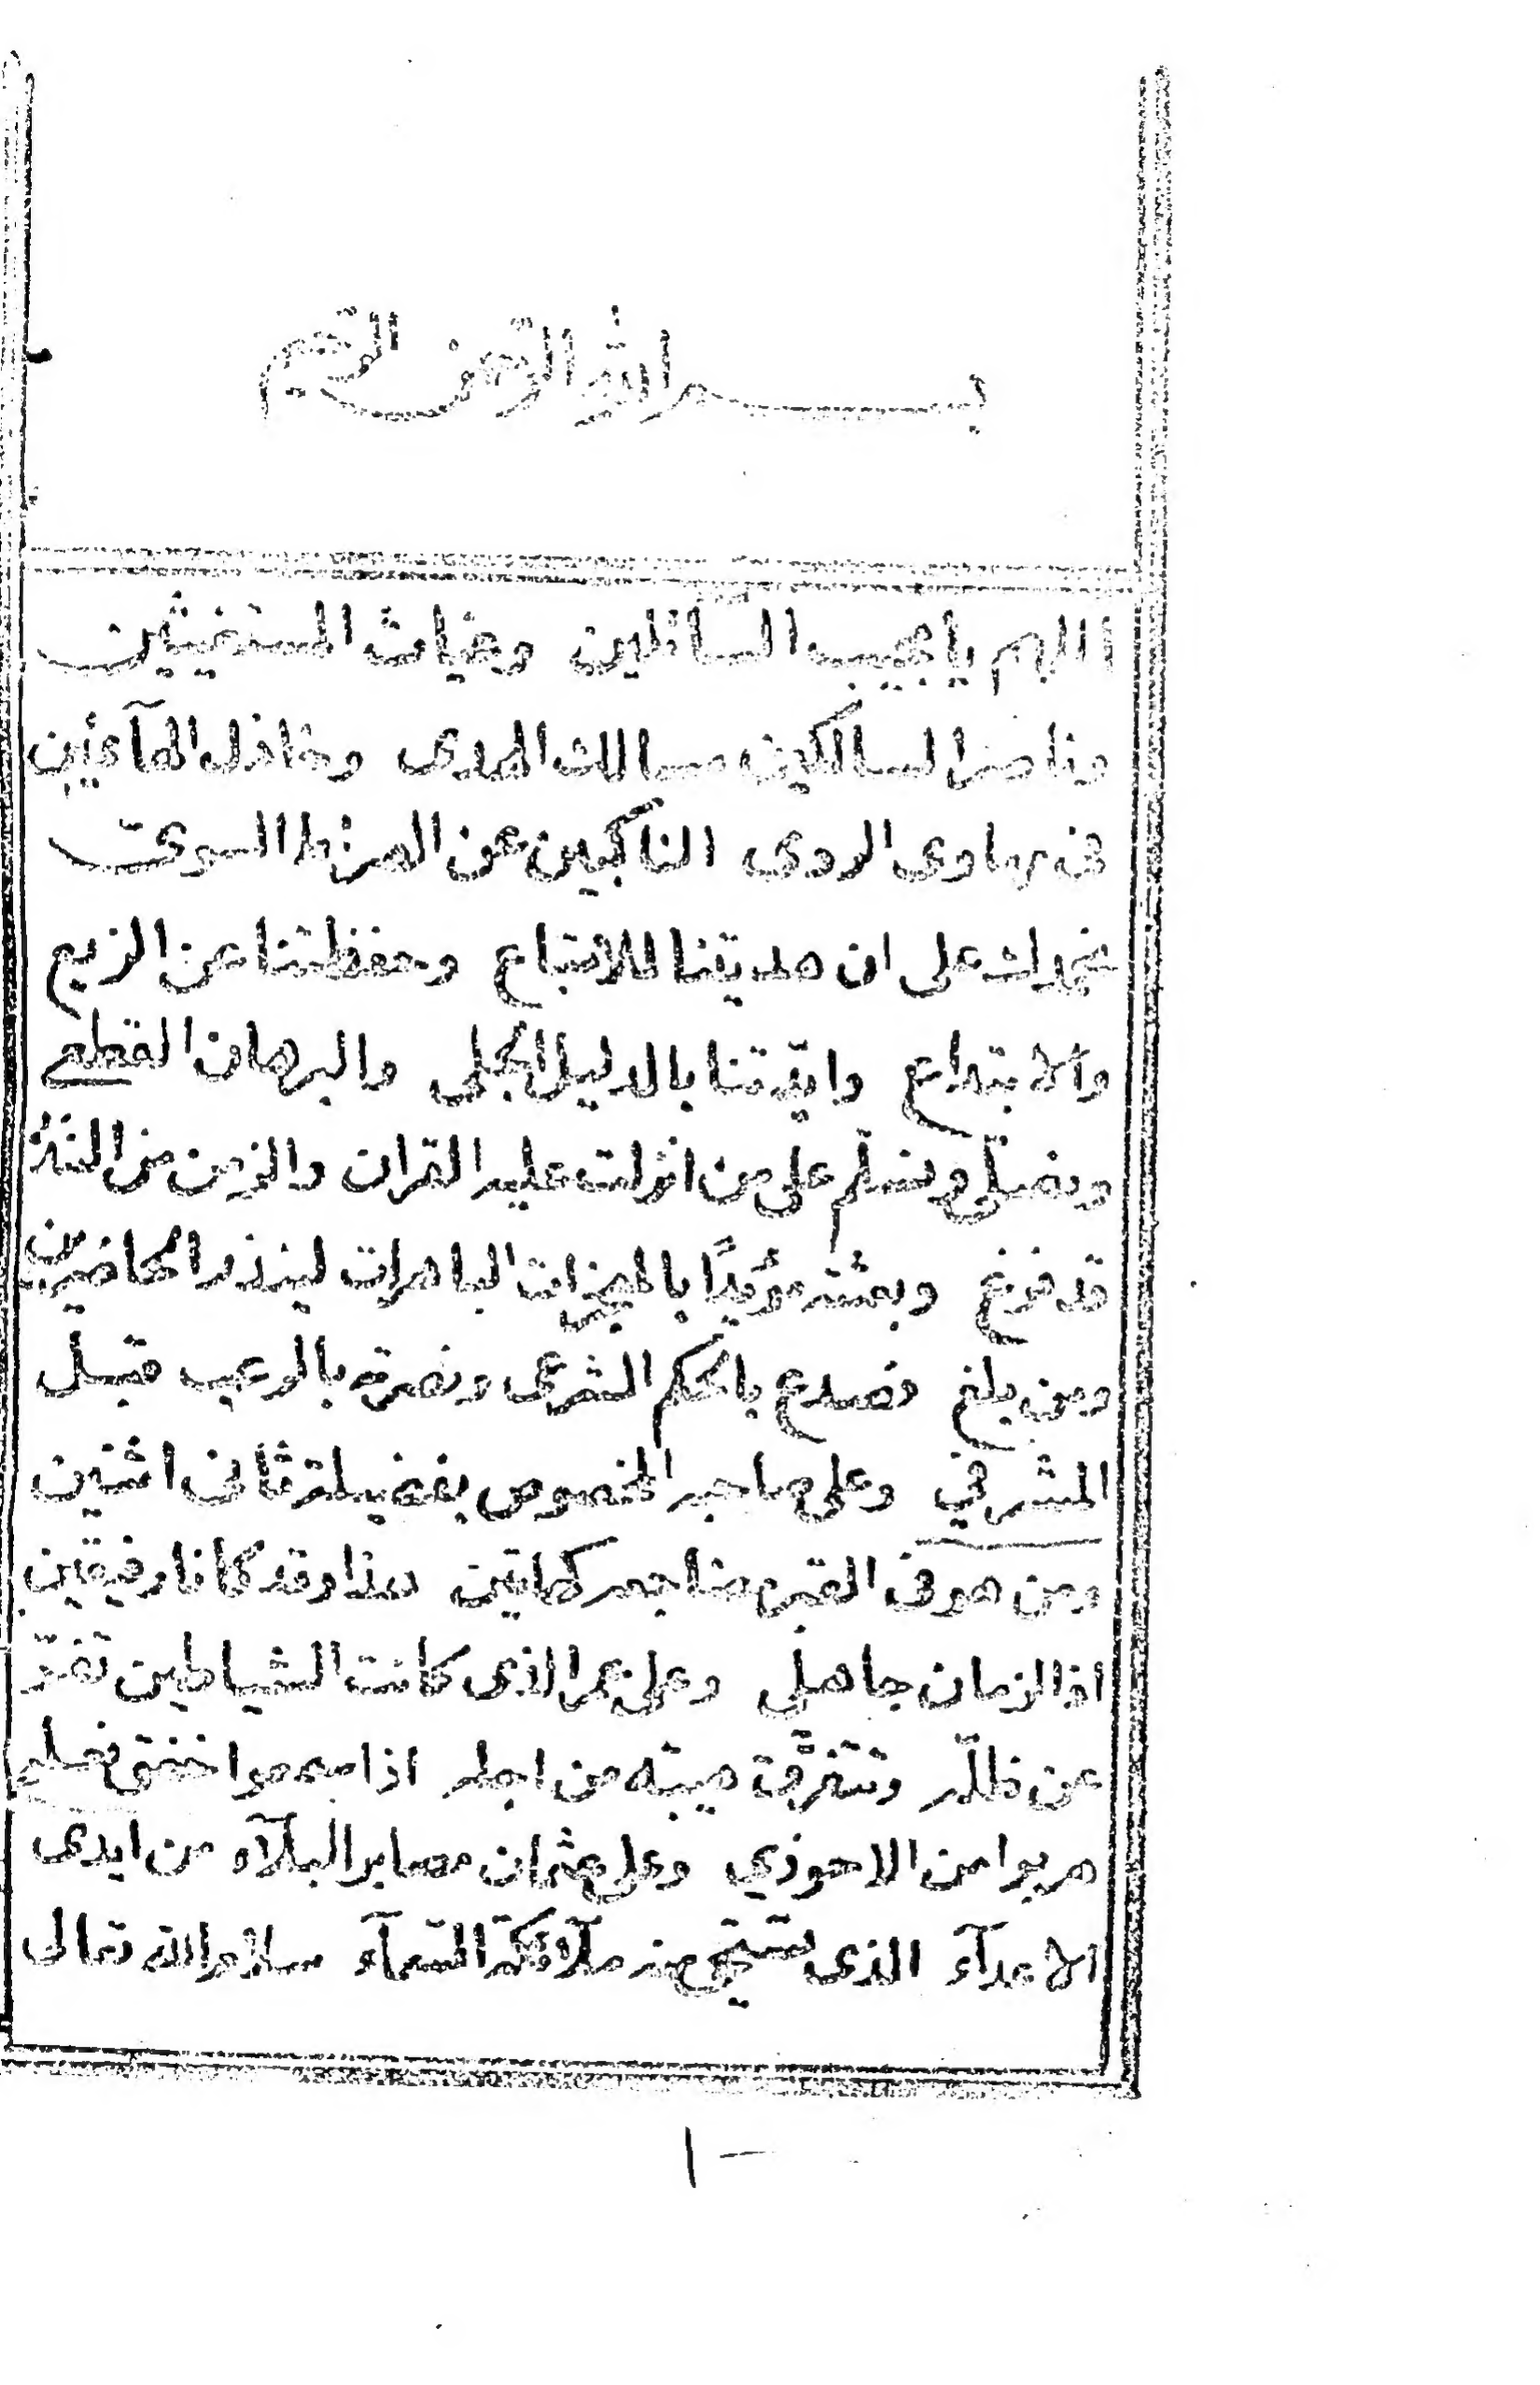 بسم الله الرحمن الرحيم
اللهم يا مجيب السائلين وغياث المستغيثين
وناصر السالكين مسالك الهدى وخاذل الهآئمين
فى مهاوى الردى الناكبين عن الصراط السوىّ
نحمدك على ان هديتنا للاتباع وحفظتنا عن الزيع
والابتداع وايّدتنا بالدليل الجلى والبرهان القطعى
ونصلّى ونسلّم على من انزلت عليه القران والزمن من
قد فرغ وبعثته مؤيدًا بالمعجزات الباهرات لينذر الحاضرين
ومن بلغ فصدع بالحكم الشرعى ونصرته بالرعب قبل
المشرفي وعلى صاحبه المخصوص بفضيلة ثانى اثنين
ومن هو فى القبر مضاجعه كهاتين هذا وقد كانا رفيقين
اذا لزمان جاهلي وعلى عمر الذى كانت الشياطين تفرّ
عن ظلّه وتتفرّق هيبته من اجله اذا سمعوا خفق نعليه
هربوا من الاحوذي وعلى عثمان مصابر البلآء من ايدى
الاعدآء الذى تستحيى منه ملآئكة السّمآء سلام الله تعالى
١